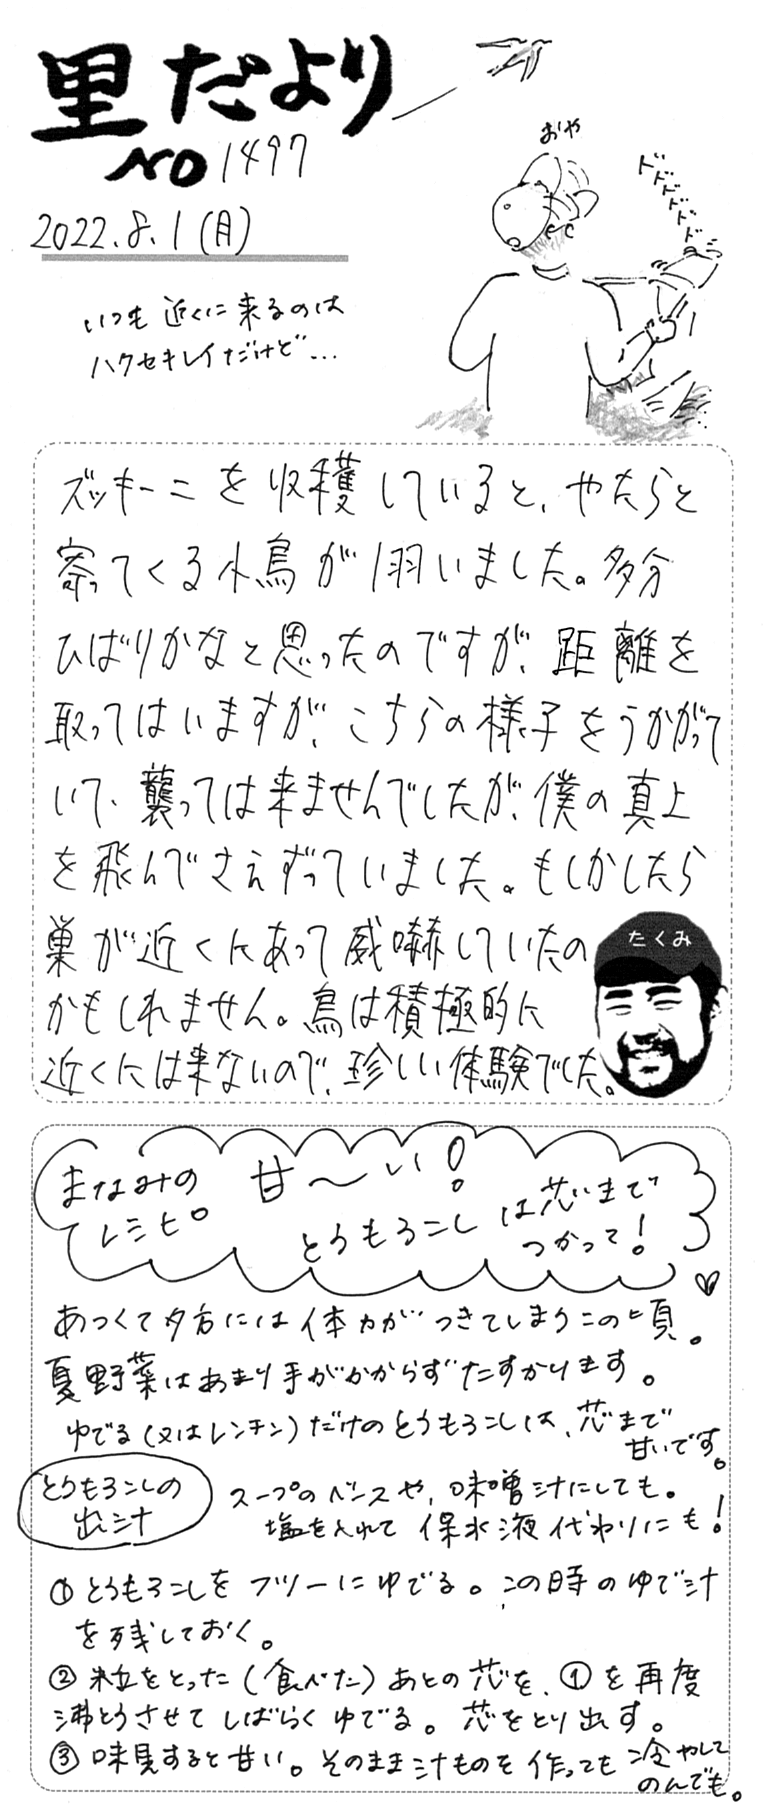 里だより
NO 1497
2022.8.1(月)
おや
ドドドドドド
いつも近くに来るのは
ハクセキレイだけど…
ズッキーニを収穫していると、やたらと
寄ってくる小鳥が1羽いました。多分
ひばりかなと思ったのですが、距離を
取ってはいますが、こちらの様子をうかがって
いて、襲っては来ませんでしたが、僕の真上
を飛んでさえずっていました。もしかしたら
巣が近くにあって威嚇していたの
かもしれません。鳥は積極的に
近くには来ないので、珍しい体験でした。
たくみ
まなみの
レシピ
甘〜い!
とうもろこしは芯まで
つかって!
あつくて夕方には体力がつきてしまうこの頃。
夏野菜はあまり手がかからずたすかります。
ゆでる(又はレンチン)だけのとうもろこしは、芯まで
甘いです。
とうもろこしの
出汁
スープのベースや、味噌汁にしても。
塩を入れて保水液代わりにも!
①とうもろこしをフツーにゆでる。この時のゆで汁
を残しておく。
②粒をとった(食べた)あとの芯を、①を再度
沸とうさせてしばらくゆでる。芯をとり出す。
③味見すると甘い。そのまま汁ものを作っても冷やして
のんでも。